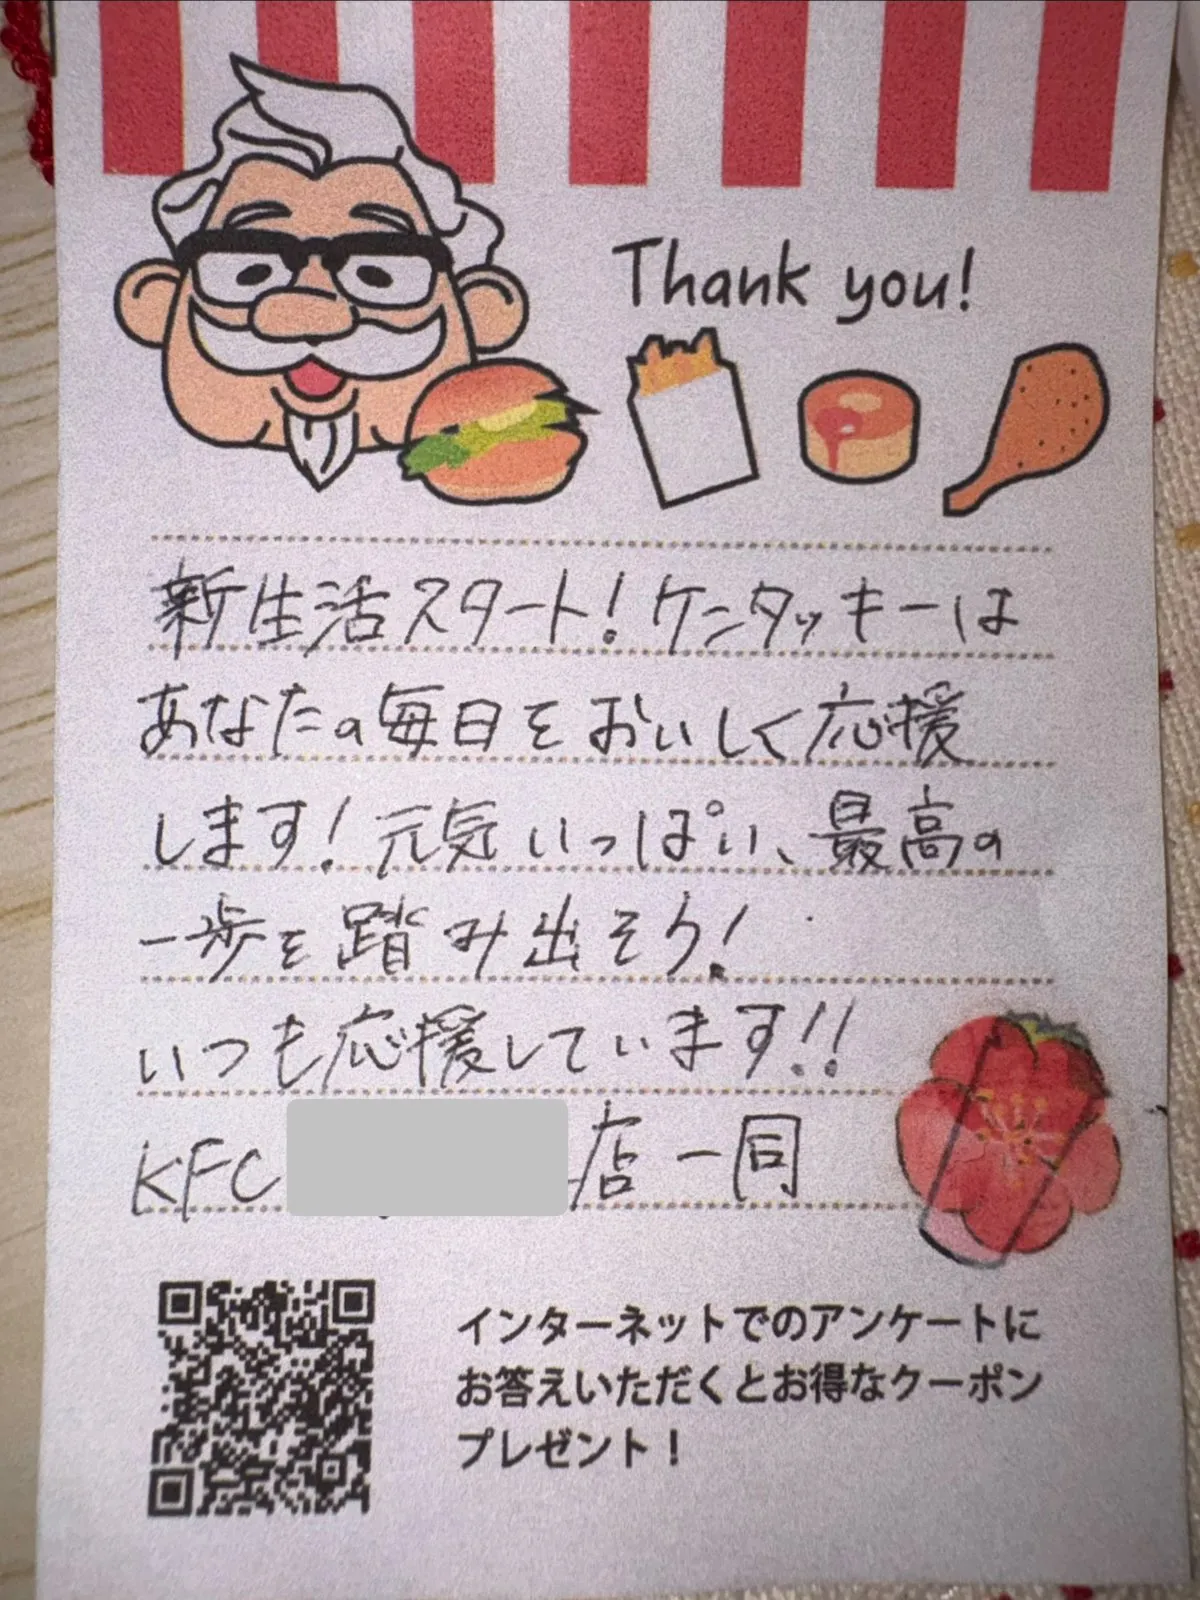 Thank you!
新生活スタート！ケンタッキーは
あなたの毎日をおいしく応援
します！元気いっぱい、最高の
一歩を踏み出そう！
いつも応援しています!!
KFC 店一同
インターネットでのアンケートに
お答えいただくとお得なクーポン
プレゼント！